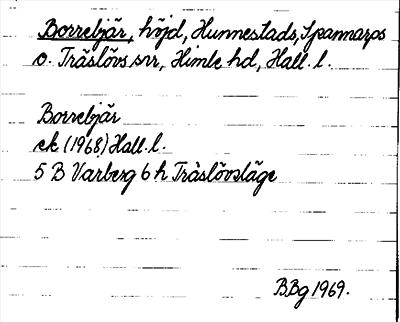 Borrebjär, höjd, Hunnestads, Spannarps
o. Träslövs snr, Himle hd, Hall. l.
Borrebjär
ek (1968) Hall. l.
5 B Varberg 6 h Träslövsläge
B.Bg 1969.